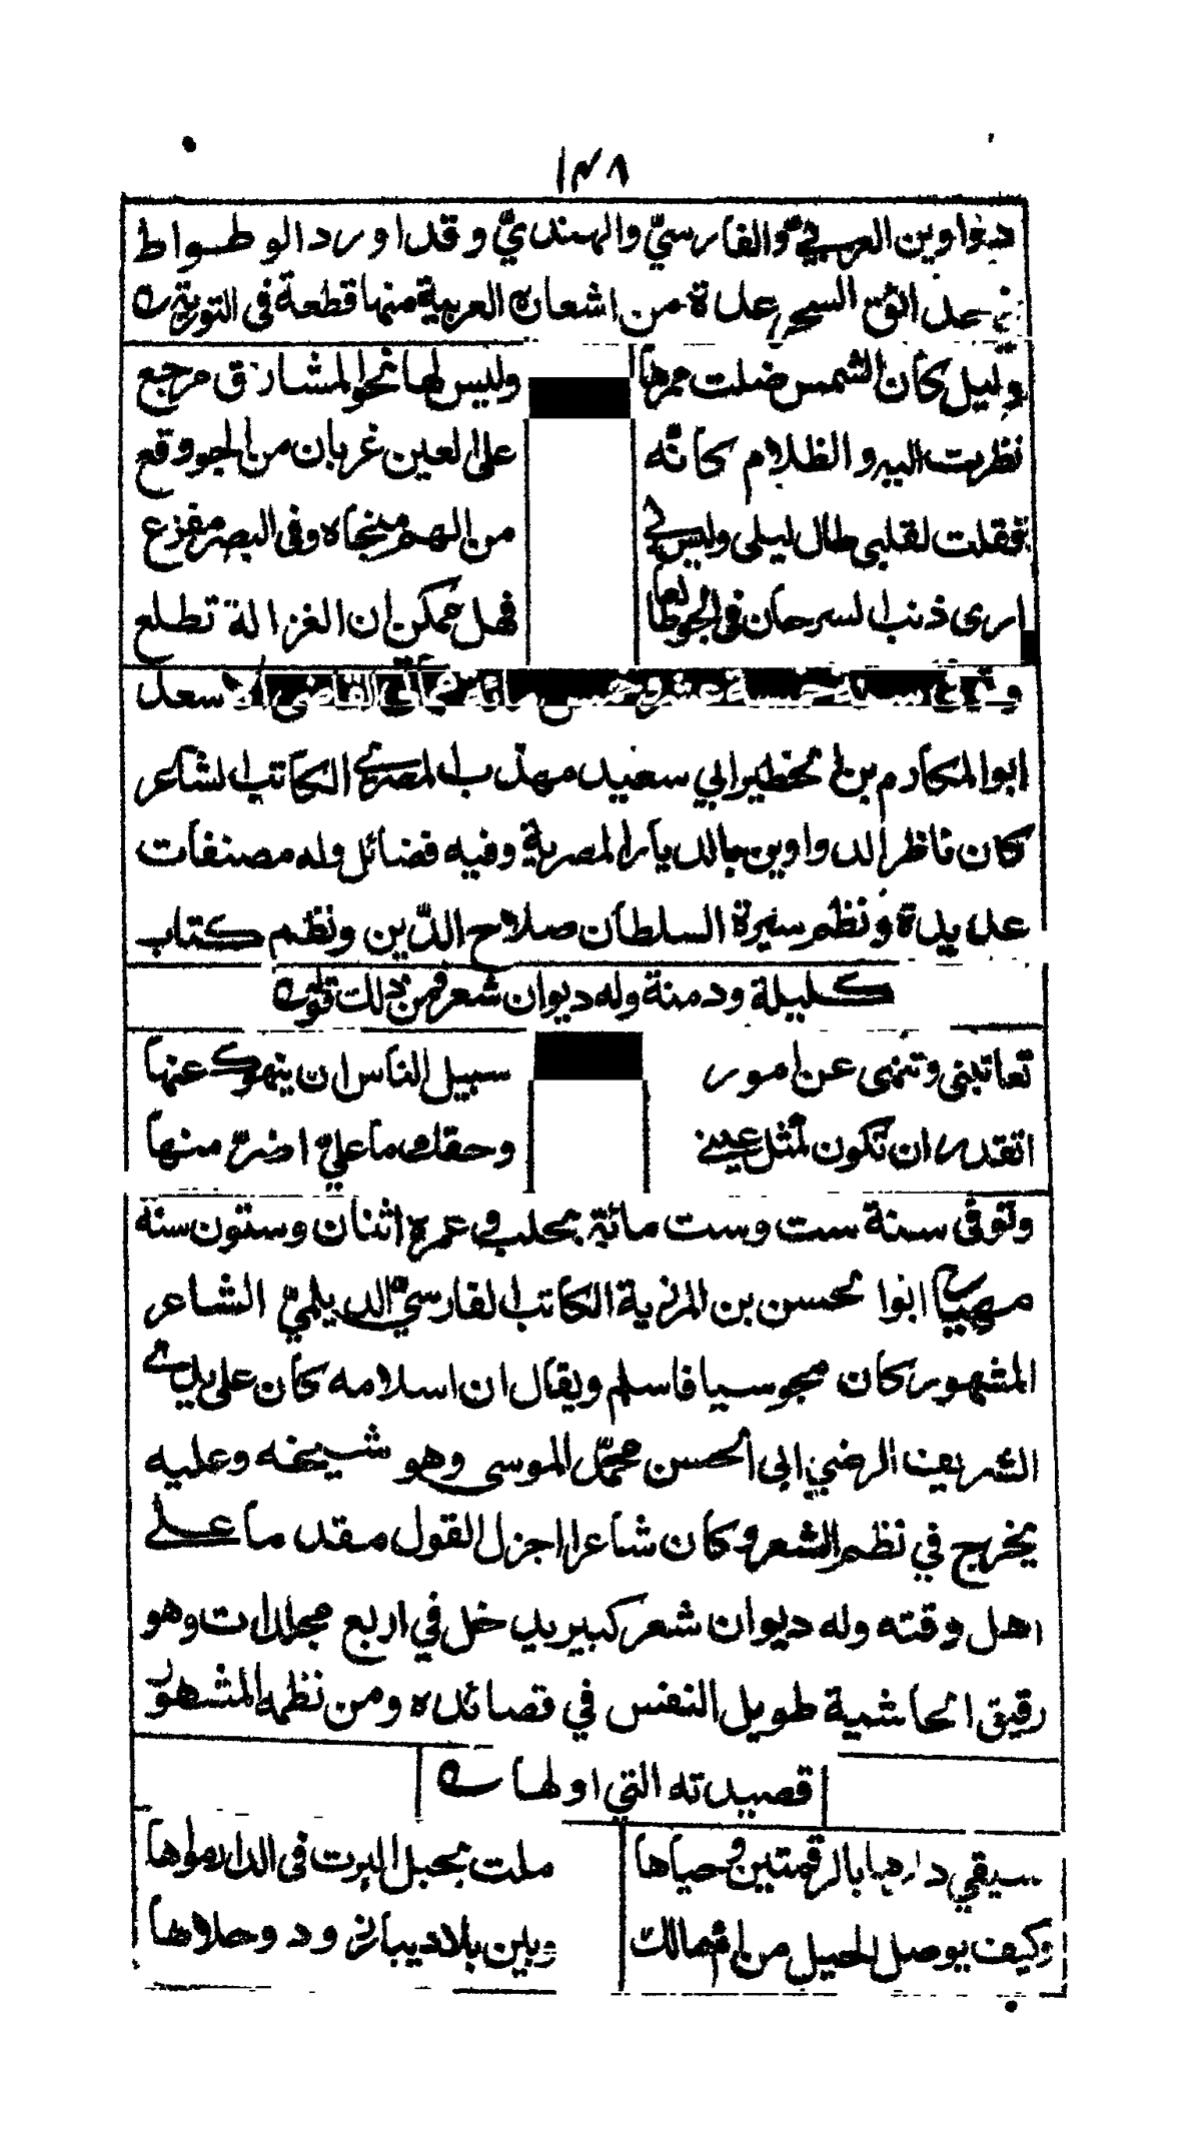 ١٣٨
ديوا وين العربيّ والفارسيّ والهنديّ وقد اورد الوطواط
في حدائق السحر عدة من اشعاره العربية منها قطعة فى التورية
وليل كأن الشمس ضلت ممرها وليس لها نحو المشارق مرجع
نظرت اليه والظلام كانّه على العين غربان من الجو وقع
فقلت لقلبي طال ليلى وليس لي من الهم منجاه وفى البصر مفزع
ارى ذنب السرحان فى الجو طالعا فهل ممكن ان الغزالة تطلع
وتوفى سنة خمسة عشر وخمس مائه مماتي القاضى الاسعد
ابو المكارم بن الخطير ابي سعيد مهذب المصري الكاتب الشاعر
كان ناظر الدواوين بالديار المصرية وفيه فضائل وله مصنفات
عديدة ونظم سيرة السلطان صلاح الدّين ونظم كتاب
كليلة ودمنة وله ديوان شعر ومن ذلك قوله
تعاتبنى وتنهى عن امور سبيل الناس ان ينهوك عنها
اتقدر ان تكون لمثل عيني وحقك ما عليّ اضرّ منها
وتوفى سنة ست وست مائة بحلب و عمره اثنان وستون سنة
مهيار ابوا لحسن بن المرزية الكاتب الفارسيّ الديلميّ الشاعر
المشهور كان مجوسيا فاسلم ويقال ان اسلامه كان على يدي
الشريف الرضي ابى الحسن محمّد الموسى وهو شيخه وعليه
يخرج في نظم الشعر وكان شاعرا اجزل القول مقدما على
اهل وقته وله ديوان شعر كبير يدخل في اربع مجلدات وهو
رقيق الحاشمية طويل النفس في قصائده ومن نظمه المشهور
قصيدته التي اولها
سيقي دارها بالرقمتين وحياها ملت بحبل الترت فى الدار مواها
وكيف بوصل الحبل من ام مالك وبين بلاد يبازرود وحلاها